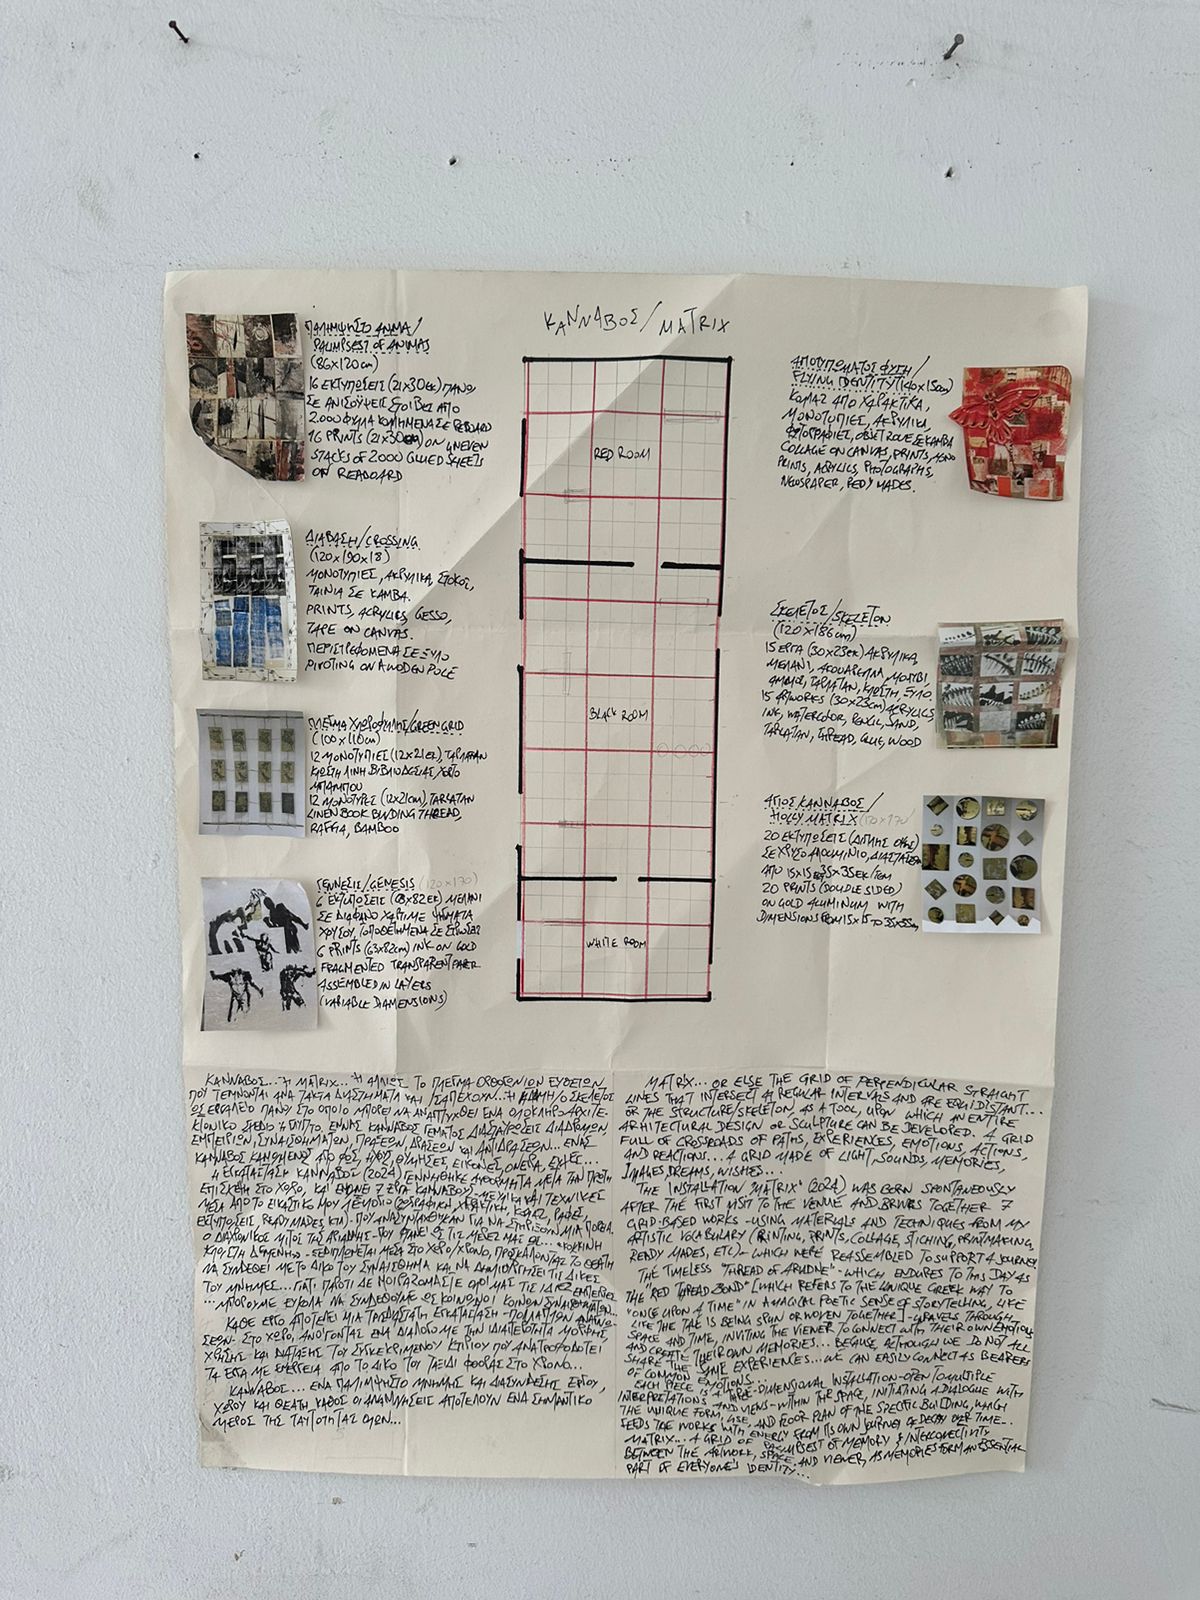 ΚΑΝΝΑΒΟΣ/MATRIX
ΠΑΛΙΜΨΗΣΤΟ ΑΝΙΜΑ/
PALIMPSEST OF ANIMAS
(86x120cm)
16 ΕΚΤΥΠΩΣΕΙΣ (21x30εκ) ΠΑΝΩ
ΣΕ ΑΝΙΣΟΥΨΕΙΣ ΣΤΟΙΒΕΣ ΑΠΟ
2.000 ΦΥΛΛΑ ΚΟΛΛΗΜΕΝΑ ΣΕ
16 PRINTS (21x30cm) ON UNEVEN
STACKS OF 2000 GLUED SHEETS
ON READOARD
ΔΙΑΒΑΣΗ/CROSSING
(120x190x18)
ΜΟΝΟΤΥΠΙΕΣ, ΑΚΡΥΛΙΚΑ, ΣΤΟΚΟΣ,
ΤΑΙΝΙΑ ΣΕ ΚΑΜΒΑ.
PRINTS, ACRYLICS, GESSO,
TAPE ON CANVAS.
ΠΕΡΙΣΤΡΕΦΟΜΕΝΑ ΣΕ ΞΥΛΟ
PIVOTING ON A WODEN POLE
ΠΛΕΓΜΑ ΧΛΩΡΟΦΥΛΛΗΣ/GREEN GRID
(100x110cm)
12 ΜΟΝΟΤΥΠΙΕΣ (12x21εκ), ΤΑΡΛΑΤΑΝ
ΚΛΩΣΤΗ ΛΙΝΗ ΒΙΒΛΙΟΔΕΣΙΑΣ, ΧΟΡΤΟ
ΜΠΑΜΠΟΥ
12 MONOTYPES (12x21cm), TARLATAN
LINEN BOOK BINDING THREAD,
RAFFIA, BAMBOO
ΓΕΝΝΕΣΙΣ/GENESIS (120x170)
6 ΕΚΤΥΠΩΣΕΙΣ (63x82εκ) ΜΕΛΑΝΙ
ΣΕ ΔΙΑΦΑΝΟ ΧΑΡΤΙ ΜΕ ΨΗΓΜΑΤΑ
ΧΡΥΣΟΥ, ΤΟΠΟΘΕΤΗΜΕΝΑ ΣΕ ΣΤΡΩΣΕΙΣ
6 PRINTS (63x82cm) INK ON GOLD
FRAGMENTED TRANSPARENT PAPER
ASSEMBLED IN LAYERS
(VARIABLE DIAMENSIONS)
RED ROOM
BLACK ROOM
WHITE ROOM
ΑΠΟΤΥΠΩΜΑΤΟΣ ΦΥΣΗ/
FLYING IDENTITY (140x150cm)
ΚΟΛΑΖ ΑΠΟ ΧΑΡΑΚΤΙΚΑ,
ΜΟΝΟΤΥΠΙΕΣ, ΑΚΡΥΛΙΚΑ,
ΦΩΤΟΓΡΑΦΙΕΣ, ΣΕ ΚΑΜΒΑ
COLLAGE ON CANVAS, PRINTS, MONO
PRINTS, ACRYLICS, PHOTOGRAPHS,
NEWSPAPER, REDY MADES.
ΣΚΕΛΕΤΟΣ/SKELETON
(120x186cm)
15 ΕΡΓΑ (30x23εκ) ΑΚΡΥΛΙΚΑ,
ΜΕΛΑΝΙ, ΑΚΟΥΑΡΕΛΛΑ, ΜΟΛΥΒΙ,
ΑΜΜΟΣ, ΤΑΡΛΑΤΑΝ, ΚΛΩΣΤΗ, ΞΥΛΟ
15 ARTWORKS (30x23cm) ACRYLICS,
INK, WATERCOLOR, PENCIL, SAND,
TARLATAN, THREAD, GLUE, WOOD
ΑΓΙΟΣ ΚΑΝΝΑΒΟΣ/
HOLLY MATRIX (170x170)
20 ΕΚΤΥΠΩΣΕΙΣ (ΔΙΠΛΗΣ ΟΨΗΣ)
ΣΕ ΧΡΥΣΟ ΑΛΟΥΜΙΝΙΟ, ΔΙΑΣΤΑΣΕΩΝ
ΑΠΟ 15x15 35x35ΕΚ/
20 PRINTS (DOUBLE SIDED)
ON GOLD ALUMINUM WITH
DIMENSIONS FROM 15x15 TO 35x35cm
ΚΑΝΝΑΒΟΣ...Ή MATRIX...Ή ΑΛΛΙΩΣ ΤΟ ΠΛΕΓΜΑ ΟΡΘΟΓΩΝΙΩΝ ΕΥΘΕΙΩΝ
ΠΟΥ ΤΕΜΝΟΝΤΑΙ ΑΝΑ ΤΑΚΤΑ ΔΙΑΣΤΗΜΑΤΑ ΚΑΙ ΙΣΑΠΕΧΟΥΝ...Ή Η ΔΟΜΗ/Ο ΣΚΕΛΕΤΟΣ
ΩΣ ΕΡΓΑΛΕΙΟ ΠΑΝΩ ΣΤΟ ΟΠΟΙΟ ΜΠΟΡΕΙ ΝΑ ΑΝΑΠΤΥΧΘΕΙ ΕΝΑ ΟΛΟΚΛΗΡΟ ΑΡΧΙΤΕ-
ΚΤΟΝΙΚΟ ΣΧΕΔΙΟ Ή ΓΛΥΠΤΟ. ΕΝΑΣ ΚΑΝΝΑΒΟΣ ΓΕΜΑΤΟΣ ΔΙΑΣΤΑΥΡΩΣΕΙΣ ΔΙΑΔΡΟΜΩΝ,
ΕΜΠΕΙΡΙΩΝ, ΣΥΝΑΙΣΘΗΜΑΤΩΝ, ΠΡΑΞΕΩΝ, ΔΡΑΣΕΩΝ ΚΑΙ ΑΝΤΙΔΡΑΣΕΩΝ... ΕΝΑΣ
ΚΑΝΝΑΒΟΣ ΚΑΜΩΜΕΝΟΣ ΑΠΟ ΦΩΣ, ΗΧΟΥΣ, ΘΥΜΗΣΕΣ, ΕΙΚΟΝΕΣ, ΟΝΕΙΡΑ, ΕΥΧΕΣ...
Η ΕΓΚΑΤΑΣΤΑΣΗ ΚΑΝΝΑΒΟΣ (2024) ΓΕΝΝΗΘΗΚΕ ΑΥΘΟΡΜΗΤΑ ΜΕΤΑ ΤΗΝ ΠΡΩΤΗ
ΕΠΙΣΚΕΨΗ ΣΤΟ ΧΩΡΟ, ΚΑΙ 7 ΕΡΓΑ ΚΑΝΝΑΒΟΥ ΜΕ ΥΛΙΚΑ ΚΑΙ ΤΕΧΝΙΚΕΣ
ΜΕΣΑ ΑΠΟ ΤΟ ΕΙΚΑΣΤΙΚΟ ΜΟΥ ΛΕΞΙΛΟΓΙΟ (ΖΩΓΡΑΦΙΚΗ, ΧΑΡΑΚΤΙΚΗ, ΚΟΛΑΖ, ΡΑΦΕΣ,
ΕΚΤΥΠΩΣΕΙΣ, READY MADES ΚΤΛ)- ΠΟΥ ΑΝΑΣΥΝΤΑΧΘΗΚΑΝ ΓΙΑ ΝΑ ΣΤΗΡΙΞΟΥΝ ΜΙΑ ΠΟΡΕΙΑ.
Ο ΔΙΑΧΡΟΝΙΚΟΣ ΜΙΤΟΣ ΤΗΣ ΑΡΙΑΔΝΗΣ -ΠΟΥ ΦΤΑΝΕΙ ΩΣ ΤΙΣ ΜΕΡΕΣ ΜΑΣ ΩΣ ...«ΚΟΚΚΙΝΗ
ΚΛΩΣΤΗ ΔΕΜΕΝΗ»- ΞΕΔΙΠΛΩΝΕΤΑΙ ΜΕΣΑ ΣΤΟ ΧΩΡΟ/ΧΡΟΝΟ, ΠΡΟΣΚΑΛΩΝΤΑΣ ΤΟ ΘΕΑΤΗ
ΝΑ ΣΥΝΔΕΘΕΙ ΜΕ ΤΟ ΔΙΚΟ ΤΟΥ ΣΥΝΑΙΣΘΗΜΑ ΚΑΙ ΝΑ ΔΗΜΙΟΥΡΓΗΣΕΙ ΤΙΣ ΔΙΚΕΣ
ΤΟΥ ΜΝΗΜΕΣ... ΓΙΑΤΙ, ΠΑΡΟΤΙ ΔΕ ΜΟΙΡΑΖΟΜΑΣΤΕ ΟΛΟΙ ΜΑΣ ΤΙΣ ΙΔΙΕΣ ΕΜΠΕΙΡΙΕΣ
...ΜΠΟΡΟΥΜΕ ΕΥΚΟΛΑ ΝΑ ΣΥΝΔΕΘΟΥΜΕ ΩΣ ΚΟΙΝΩΝΟΙ ΚΟΙΝΩΝ ΣΥΝΑΙΣΘΗΜΑΤΩΝ...
ΚΑΘΕ ΕΡΓΟ ΑΠΟΤΕΛΕΙ ΜΙΑ ΤΡΙΣΔΙΑΣΤΑΤΗ ΕΓΚΑΤΑΣΤΑΣΗ -ΠΟΛΛΑΠΛΩΝ ΑΝΑΓΝΩ-
ΣΕΩΝ- ΣΤΟ ΧΩΡΟ, ΑΝΟΙΓΟΝΤΑΣ ΕΝΑ ΔΙΑΛΟΓΟ ΜΕ ΤΗΝ ΙΔΙΑΙΤΕΡΟΤΗΤΑ ΜΟΡΦΗΣ,
ΧΡΗΣΗΣ ΚΑΙ ΔΙΑΤΑΞΗΣ ΤΟΥ ΣΥΓΚΕΚΡΙΜΕΝΟΥ ΚΤΙΡΙΟΥ ΠΟΥ ΑΝΑΤΡΟΦΟΔΟΤΕΙ
ΤΑ ΕΡΓΑ ΜΕ ΕΝΕΡΓΕΙΑ ΑΠΟ ΤΟ ΔΙΚΟ ΤΟΥ ΤΑΞΙΔΙ ΦΘΟΡΑΣ ΣΤΟ ΧΡΟΝΟ...
ΚΑΝΝΑΒΟΣ... ΕΝΑ ΠΑΛΙΜΨΗΣΤΟ ΜΝΗΜΗΣ ΚΑΙ ΔΙΑΣΥΝΔΕΣΗΣ ΕΡΓΟΥ,
ΧΩΡΟΥ ΚΑΙ ΘΕΑΤΗ ΚΑΘΩΣ ΟΙ ΑΝΑΜΝΗΣΕΙΣ ΑΠΟΤΕΛΟΥΝ ΕΝΑ ΣΗΜΑΝΤΙΚΟ
ΜΕΡΟΣ ΤΗΣ ΤΑΥΤΟΤΗΤΑΣ ΟΛΩΝ...
MATRIX... OR ELSE THE GRID OF PERPENDICULAR STRAIGHT
LINES THAT INTERSECT AT REGULAR INTERVALS AND ARE EQUIDISTANT...
OR THE STRUCTURE/SKELETON, AS A TOOL, UPON WHICH AN ENTIRE
ARCHITECTURAL DESIGN OR SCULPTURE CAN BE DEVELOPED. A GRID
FULL OF CROSSROADS OF PATHS, EXPERIENCES, EMOTIONS, ACTIONS,
AND REACTIONS... A GRID MADE OF LIGHT, SOUNDS, MEMORIES,
IMAGES, DREAMS, WISHES...
THE INSTALLATION "MATRIX" (2024) WAS BORN SPONTANEOUSLY
AFTER THE FIRST VISIT TO THE VENUE AND BRINGS TOGETHER 7
GRID-BASED WORKS -USING MATERIALS AND TECHNIQUES FROM MY
ARTISTIC VOCABULARY (PAINTING, PRINTS, COLLAGE, STICHING, PRINTMAKING,
READY MADES, ETC)- WHICH WERE REASSEMBLED TO SUPPORT A JOURNEY
THE TIMELESS "THREAD OF ARIADNE" -WHICH ENDURES TO THIS DAY AS
THE "RED THREAD BOND" [WHICH REFERS TO THE UNIQUE GREEK WAY TO
"ONCE UPON A TIME" IN A MAGICAL POETIC SENSE OF STORYTELLING, LIKE
LIFE THE TALE IS BEING SPUN OR WOVEN TOGETHER]- UNRAVELS THROUGH
SPACE AND TIME, INVITING THE VIEWER TO CONNECT WITH THEIR OWN EMOTIONS
AND CREATE THEIR OWN MEMORIES... BECAUSE, ALTHOUGH WE DO NOT ALL
SHARE THE SAME EXPERIENCES... WE CAN EASILY CONNECT AS BEARERS
OF COMMON EMOTIONS...
EACH PIECE IS A THREE-DIMENSIONAL INSTALLATION -OPEN TO MULTIPLE
INTERPRETATIONS AND VIEWS- WITHIN THE SPACE, INITIATING A DIALOGUE WITH
THE UNIQUE FORM, USE, AND FLOOR PLAN OF THE SPECIFIC BUILDING, WHICH
FEEDS THE WORKS WITH ENERGY FROM ITS OWN JOURNEY OF DECAY OVER TIME...
MATRIX... A GRID OF PALIMPSEST OF MEMORY & INTERCONECTIVITY
BETWEEN THE ARTWORK, SPACE, AND VIEWER, AS MEMORIES FORM AN ESSENTIAL
PART OF EVERYONE'S IDENTITY...